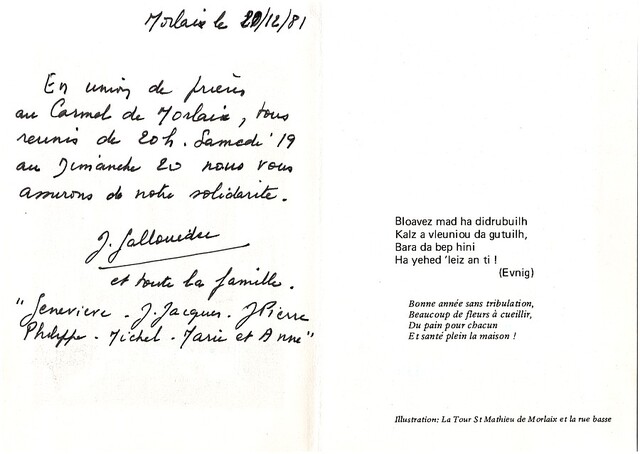 Morlaix le 20/12/81
En union de prières
au Carmel de Morlaix, tous
reunis de 20h. Samedi 19
au Dimanche 20 nous vous
assurons de notre solidarite.
J.
et toute la famille.
"Genevieve - J.Jacques - J Pierre
Philippe - Michel - Marie et Anne"
Bloavez mad ha didrubuilh
Kalz a vleuniou da gutuilh,
Bara da bep hini
Ha yehed 'leiz an ti !
(Evnig)
Bonne année sans tribulation,
Beaucoup de fleurs à cueillir,
Du pain pour chacun
Et santé plein la maison !
Illustration: La Tour St Mathieu de Morlaix et la rue basse